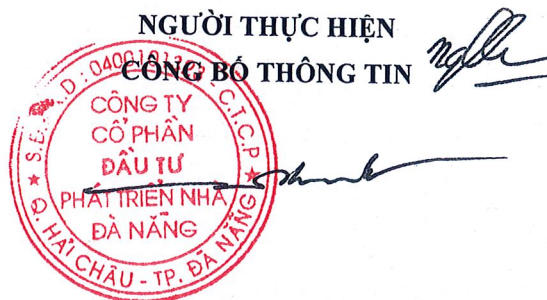 NGƯỜI THỰC HIỆN
CÔNG BỐ THÔNG TIN
CÔNG TY
CỔ PHẦN
ĐẦU TƯ
PHÁT TRIỂN NHÀ
ĐÀ NẴNG
Q. HẢI CHÂU - TP. ĐÀ NẴNG